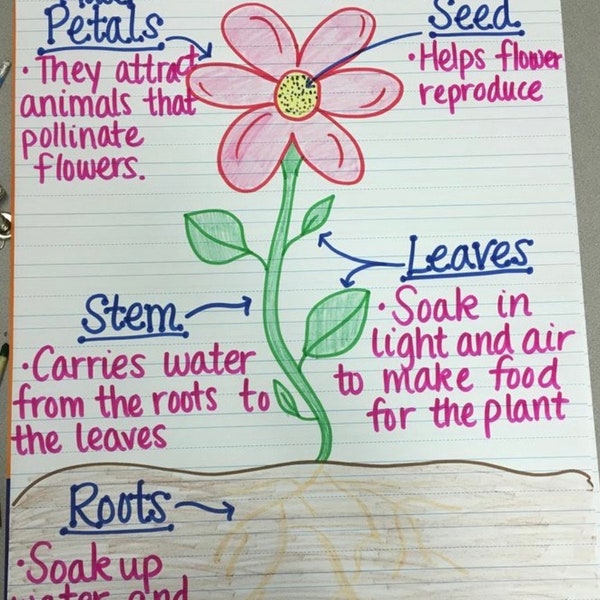 Petals
• They attract
animals that
pollinate
flowers.
Seed
• Helps flower
reproduce
Leaves
• Soak in
light and air
to make food
for the plant
Stem
• Carries water
from the roots to
the leaves
Roots
• Soak up
water and